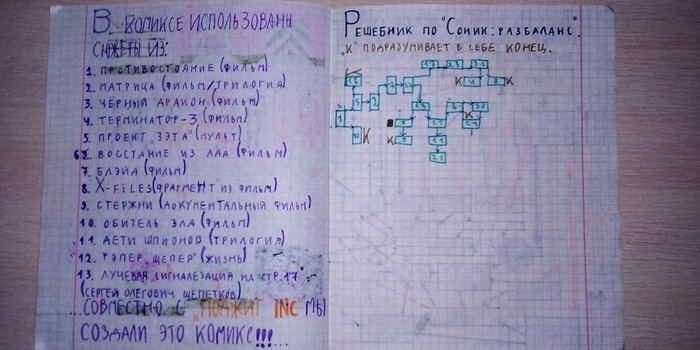 В комиксе использованы
сюжеты из:
1. Противостояние (фильм)
2. Матрица (фильм/трилогия)
3. Чёрный дракон (фильм)
4. Терминатор-3 (фильм)
5. Проект "Зэта" (мульт)
6. Восстание из ада (фильм)
7. Блэйд (фильм)
8. X-Files (фрагмент из фильм)
9. Стержни (документальный фильм)
10. Обитель зла (фильм)
11. Дети шпионов (трилогия)
12. Рэпер "Щепер" (жизнь)
13. Лучевая сигнализация на стр. 17
(Сергей Олегович Щепетков)
...Совместно с "Поджит INC" мы
создали это комикс!!!...
Решебник по "Соник: разбаланс".
"К" подразумивает в себе конец.
К
К
К
К
К